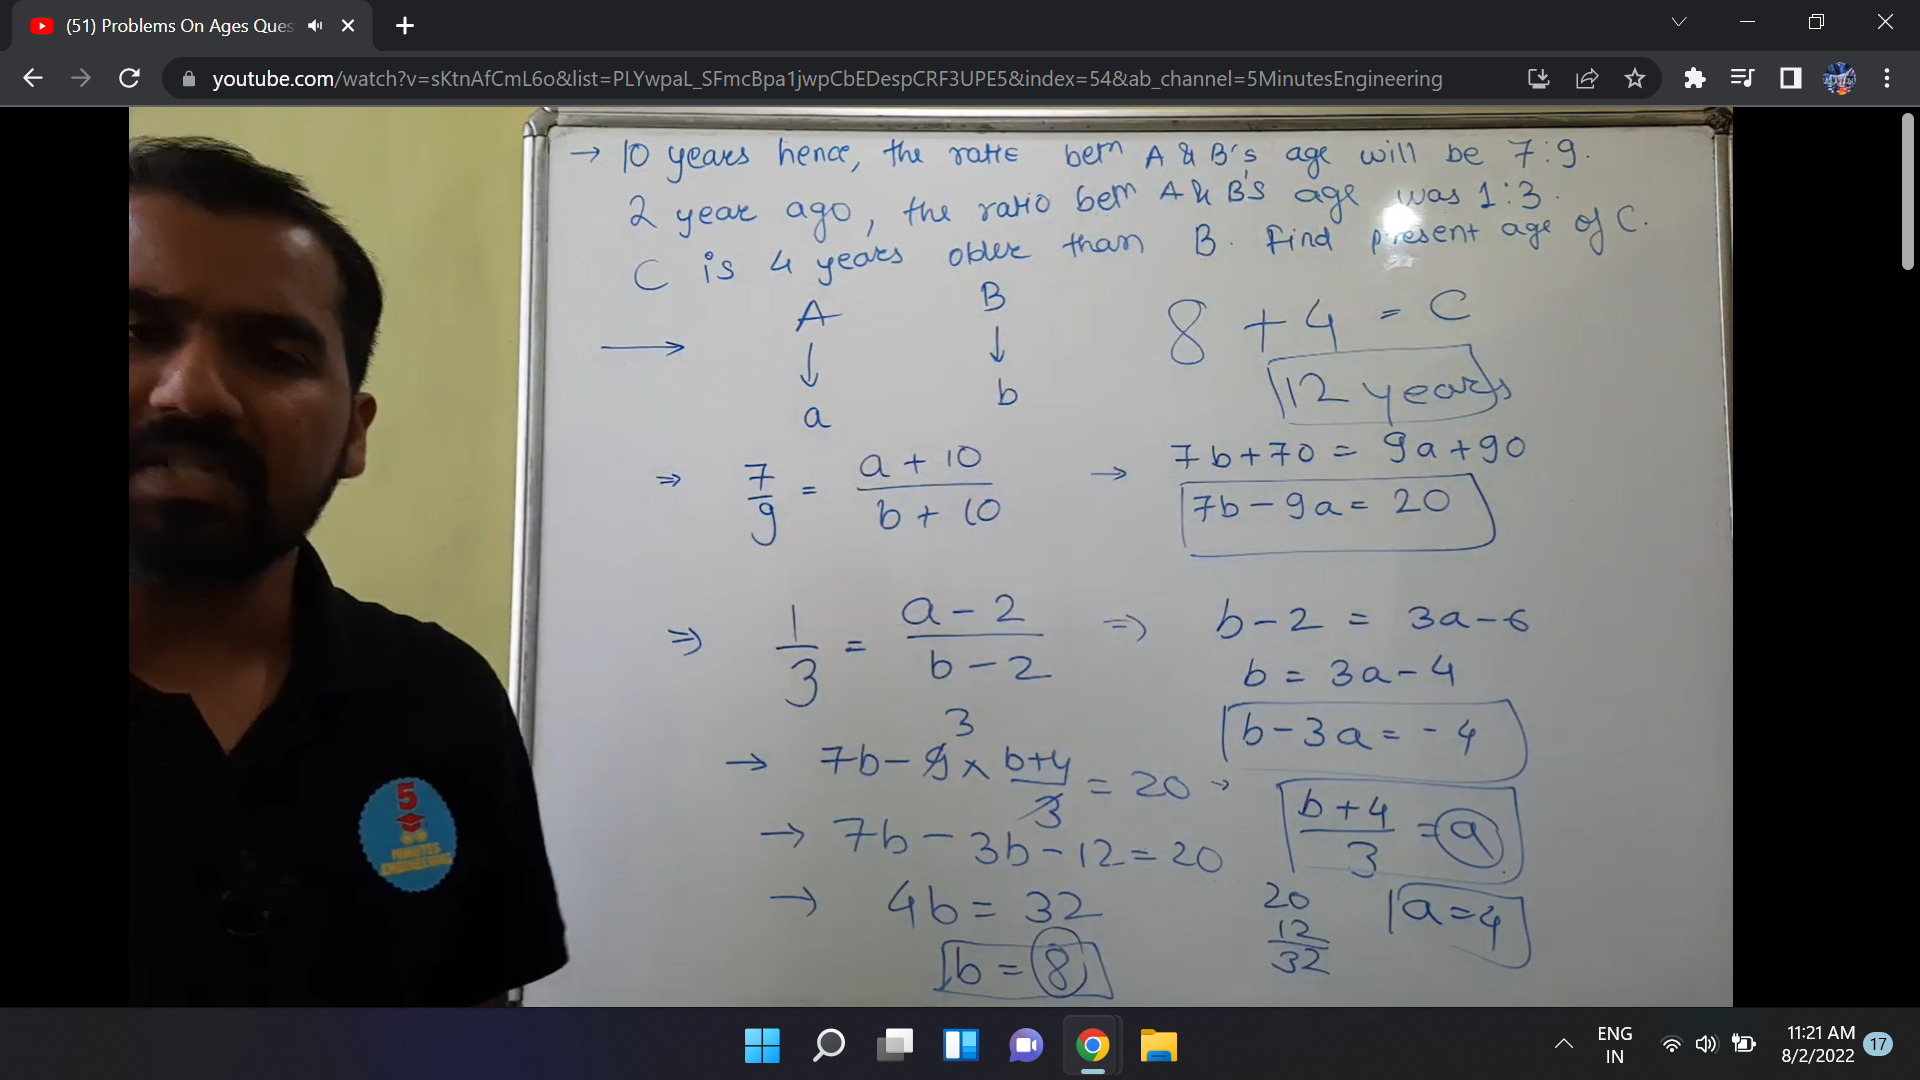 (51) Problems On Ages Ques
youtube.com/watch?v=sKtnAfCmL6o&list=PLYwpaL_SFmcBpa1jwpCbEDespCRF3UPE5&index=54&ab_channel=5MinutesEngineering
→ 10 years hence, the ratio betn A & B's age will be 7:9.
2 year ago, the ratio betn A & B's age was 1:3.
C is 4 years older than B. Find present age of C.
A B
↓ ↓
a b
→
8 + 4 = C
12 years
⇒ 7/9 = (a + 10)/(b + 10) → 7b + 70 = 9a + 90
7b - 9a = 20
⇒ 1/3 = (a - 2)/(b - 2) ⇒ b - 2 = 3a - 6
b = 3a - 4
b - 3a = - 4
3
→ 7b - 9 × (b+4)/3 = 20 → (b + 4)/3 = a
→ 7b - 3b - 12 = 20
→ 4b = 32
b = 8
20
12
32
a = 4
5
MINUTES
ENGINEERING
ENG
IN
11:21 AM
8/2/2022
17